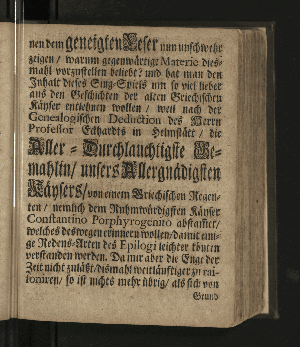 nen dem geneigten Leser nun unschwehr
zeigen / warum gegenwärtige Materie dies-
mahl vorzustellen beliebt? und hat man den
Inhalt dieses Sing-Spiels um so viel lieber
aus den Geschichten der alten Griechischen
Käyser entlehnen wollen / weil nach der
Genealogischen Deduction des Herrn
Professor Eckhardts in Helmstätt / die
Aller-Durchlauchtigste Ge-
mahlin / unsers Allergnädigsten
Käysers / von einem Griechischen Regen-
ten / nemlich dem Ruhmwürdigsten Käyser
Constantino Porphyrogenito abstam̅et /
welches deswegen erinnern wollen / damit eini-
ge Redens-Arten des Epilogi leichter könten
verstanden werden. Da mir aber die Enge der
Zeit nicht zuläßt / dismahl weitläuftiger zu rai-
soniren / so ist nichts mehr übrig / als sich von
Grund